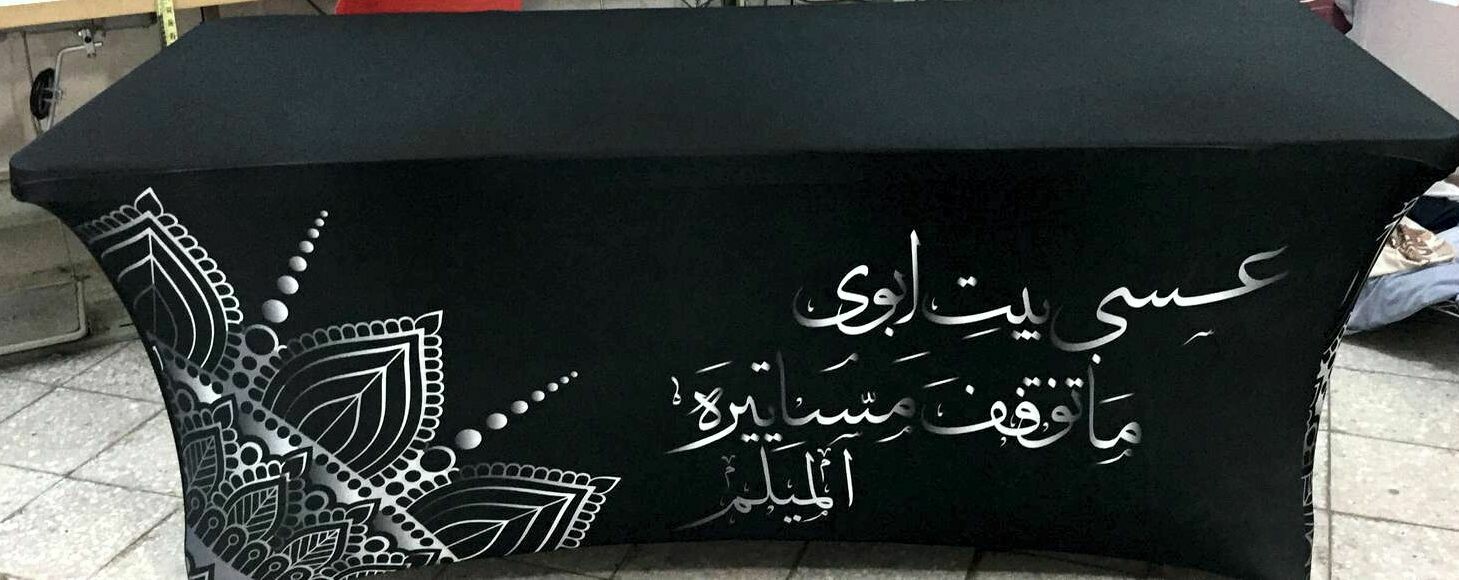 عسى بيتِ ابوى
مَاتوقفَ مَسّاتيرهَ
الميلم